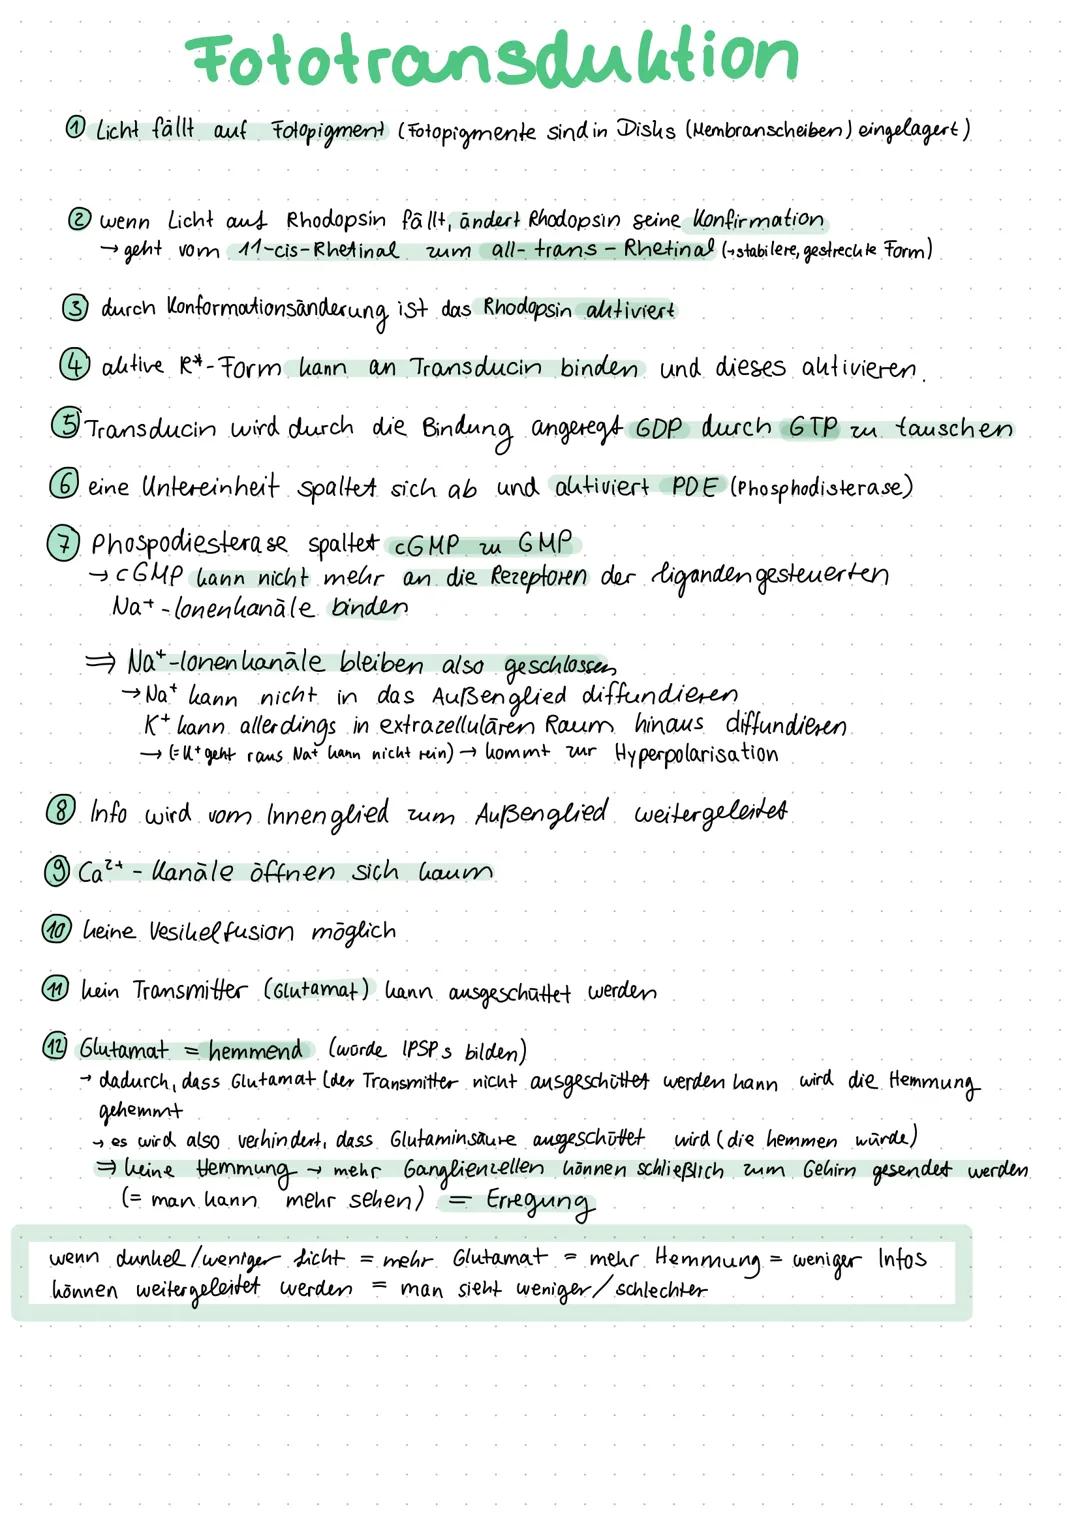 Fototransduktion
① Licht fällt auf Fotopigment (Fotopigmente sind in Disks (Membranscheiben) eingelagert)
② wenn Licht auf Rhodopsin fällt, ändert Rhodopsin seine Konfirmation
→ geht vom 11-cis-Rhetinal zum all-trans-Rhetinal (→stabilere, gestreckte Form)
③ durch Konformationsänderung ist das Rhodopsin aktiviert
④ aktive R*-Form kann an Transducin binden und dieses aktivieren.
⑤ Transducin wird durch die Bindung angeregt GDP durch GTP zu tauschen
⑥ eine Untereinheit spaltet sich ab und aktiviert PDE (Phosphodisterase)
⑦ Phospodiesterase spaltet cGMP zu GMP
→ cGMP kann nicht mehr an die Rezeptoren der ligandengesteuerten
Na⁺-Ionenkanäle binden
⇒ Na⁺-Ionenkanäle bleiben also geschlossen
→ Na⁺ kann nicht in das Außenglied diffundieren
K⁺ kann allerdings in extrazellulären Raum hinaus diffundieren
→ (= K⁺ geht raus Na⁺ kann nicht rein) → kommt zur Hyperpolarisation
⑧ Info wird vom Innenglied zum Außenglied weitergeleitet
⑨ Ca²⁺ - Kanäle öffnen sich kaum
⑩ keine Vesikelfusion möglich
⑪ kein Transmitter (Glutamat) kann ausgeschüttet werden
⑫ Glutamat = hemmend (würde IPSPs bilden)
→ dadurch, dass Glutamat (der Transmitter nicht ausgeschüttet werden kann wird die Hemmung
gehemmt
→ es wird also verhindert, dass Glutaminsäure augeschüttet wird (die hemmen würde)
⇒ keine Hemmung → mehr Ganglienzellen können schließlich zum Gehirn gesendet werden
(= man kann mehr sehen) = Erregung
wenn dunkel/weniger Licht = mehr Glutamat = mehr Hemmung = weniger Infos
können weitergeleitet werden = man sieht weniger/schlechter